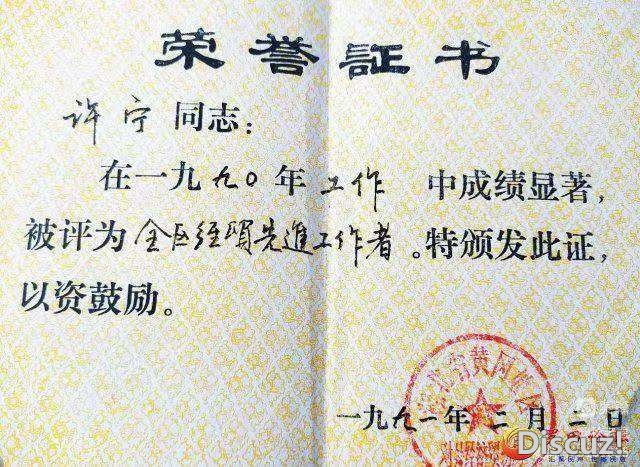 荣誉証书
许宁同志：
在一九九〇年工作中成绩显著，
被评为全区经贸先進工作者。特颁发此证，
以资鼓励。
湖北省黄冈地区
一九九一年二月二日
Discuz!